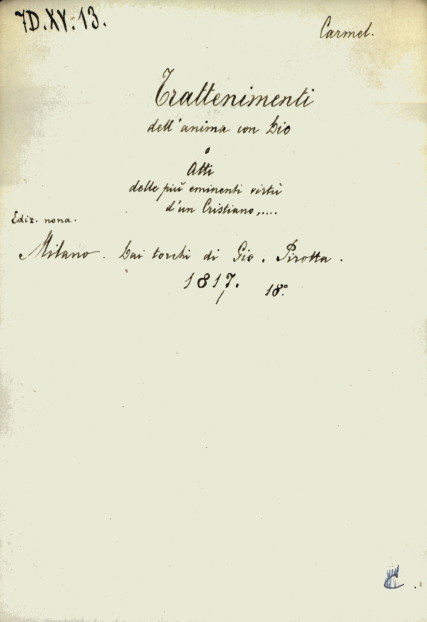 7D.XV.13.
Carmel.
Trattenimenti
dell'anima con Dio
o
Atti
delle più eminenti virtù
d'un Cristiano,....
Ediz. nona.
Milano. Dai torchi di Gio. Pirotta.
1817. 18º.
C.